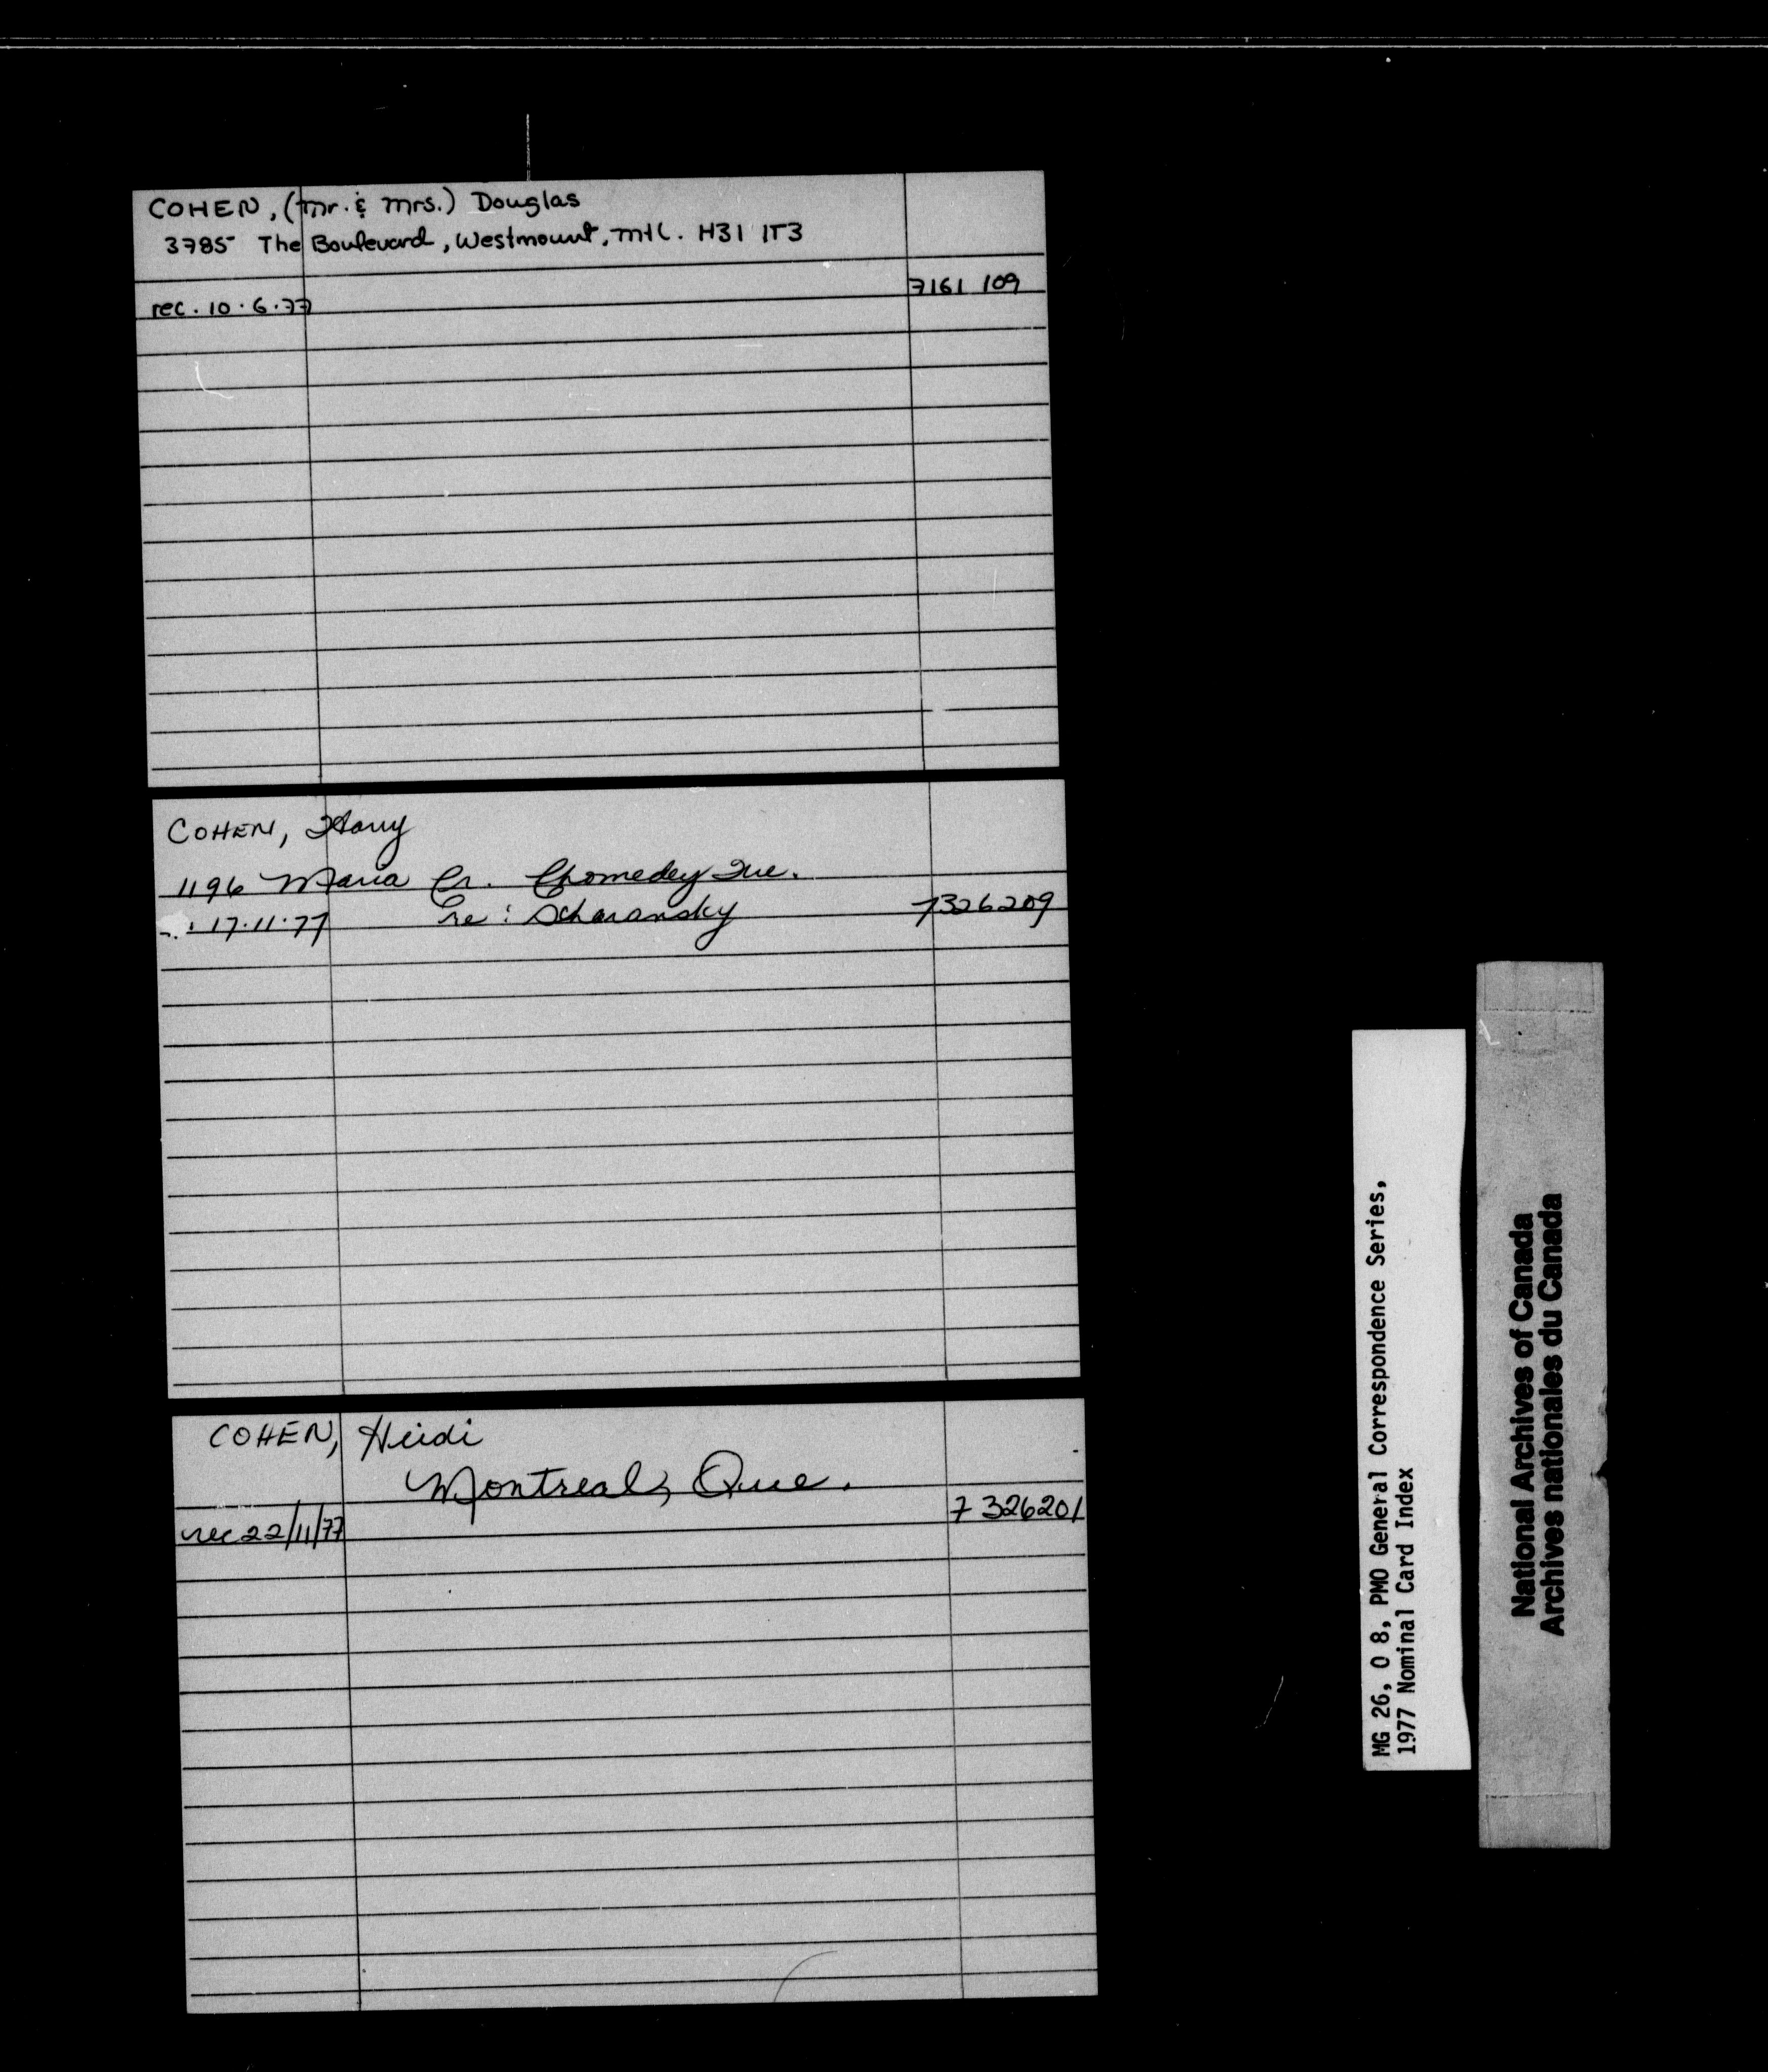 COHEN, (Mr. & Mrs.) Douglas
3785 The Boulevard, Westmount, Mtl. H31 1T3
rec. 10.6.77 7161 109
COHEN, Harry
1196 Maria Cr. Chomedey Que.
17.11.77 re: Scharansky 7326209
COHEN, Heidi
Montreal, Que.
rec 22/11/77 7 326201
MG 26, O 8, PMO General Correspondence Series,
1977 Nominal Card Index
National Archives of Canada
Archives nationales du Canada